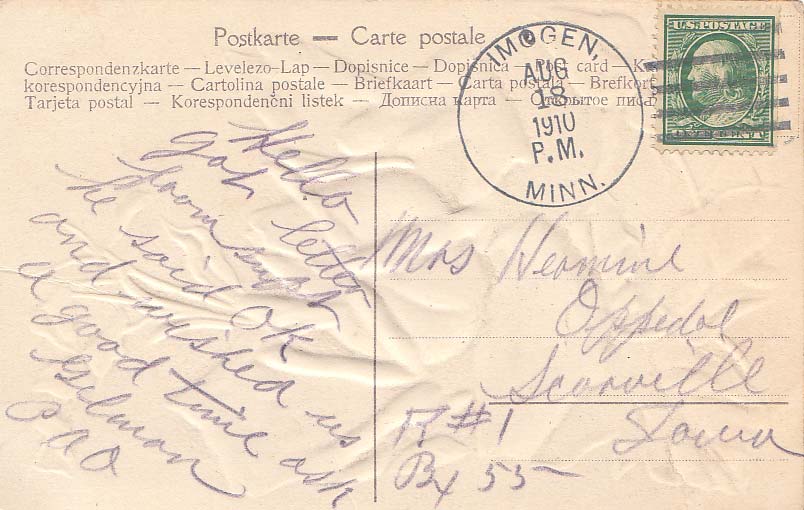 Postkarte — Carte postale
Correspondenzkarte — Levelezo-Lap — Dopisnice — Dopisnica — Post card — K
korespondencyjna — Cartolina postale — Briefkaart — Carta postala — Brefkort
Tarjeta postal — Korespondenčni listek — Дописна карта — Открытое письм
IMOGEN,
AUG
18
1910
P.M.
MINN.
U.S. POSTAGE
Hello
got letter
from
he said OK
and wished us
a good time ask
Gilman
Mrs Hermine
Oppedal
Scarville
Iowa
R #1
Bx 55